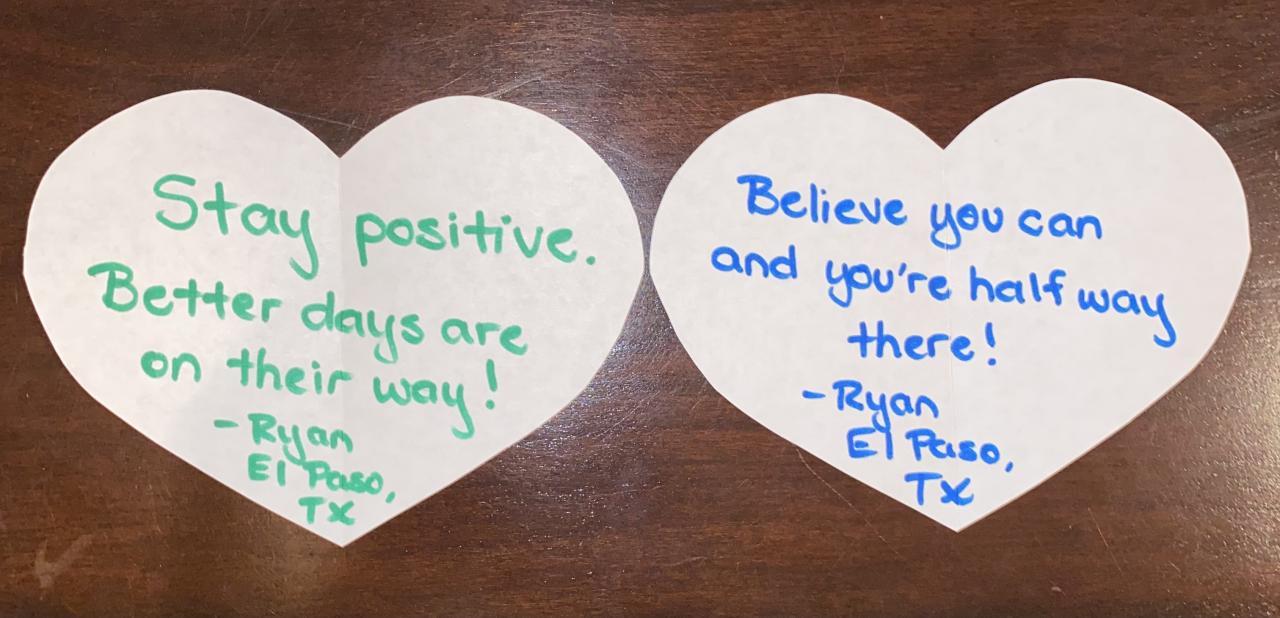 Stay positive.
Better days are
on their way!
- Ryan
El Paso,
TX
Believe you can
and you're half way
there!
- Ryan
El Paso,
TX